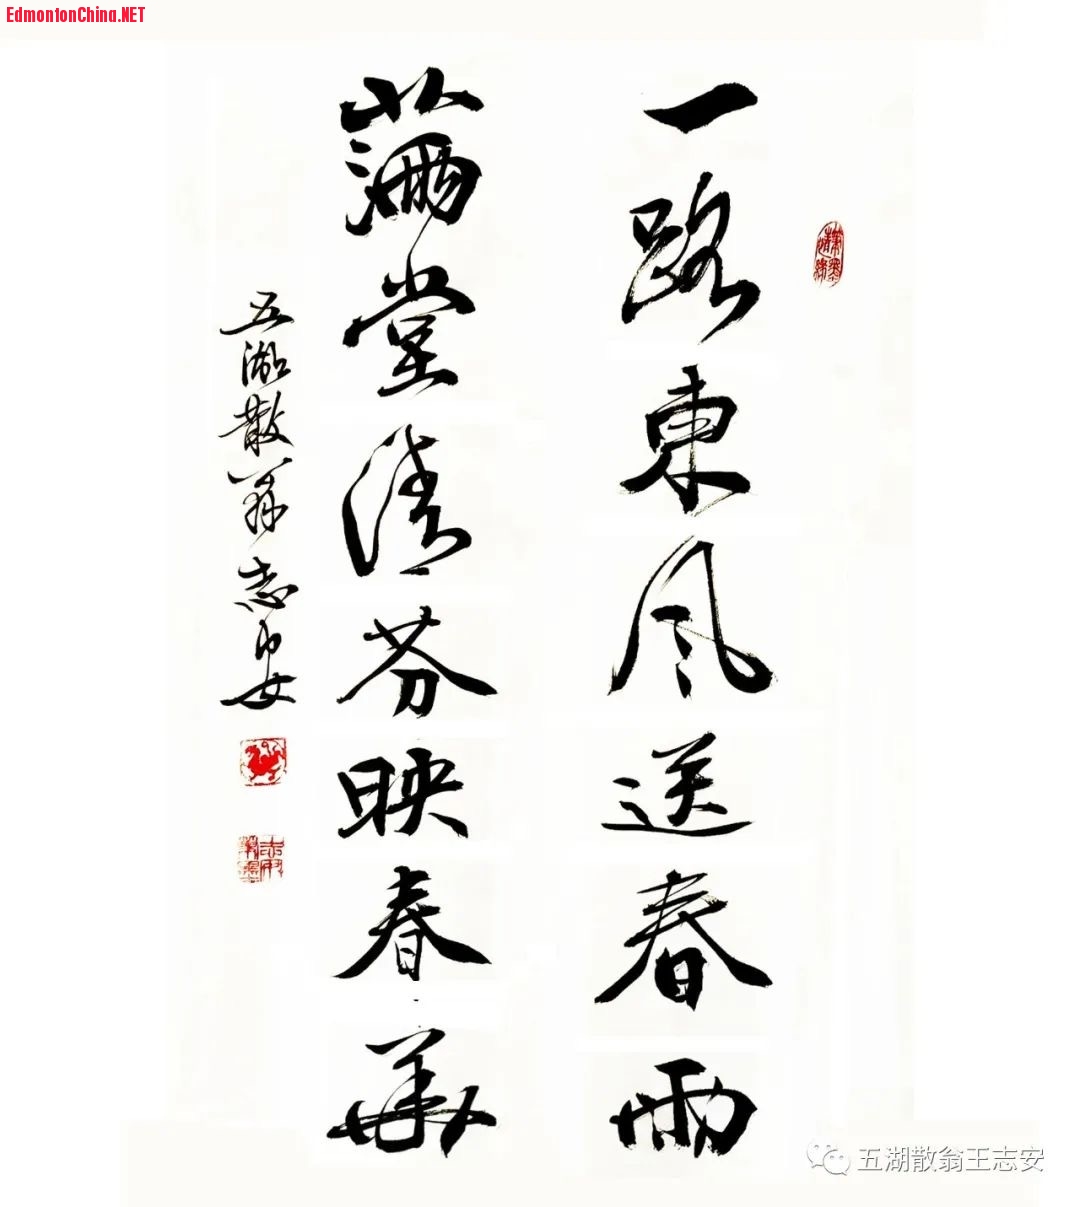 EdmontonChina.NET
一路東风送春雨
满堂清芬映春華
五湖散翁志安
五湖散翁王志安